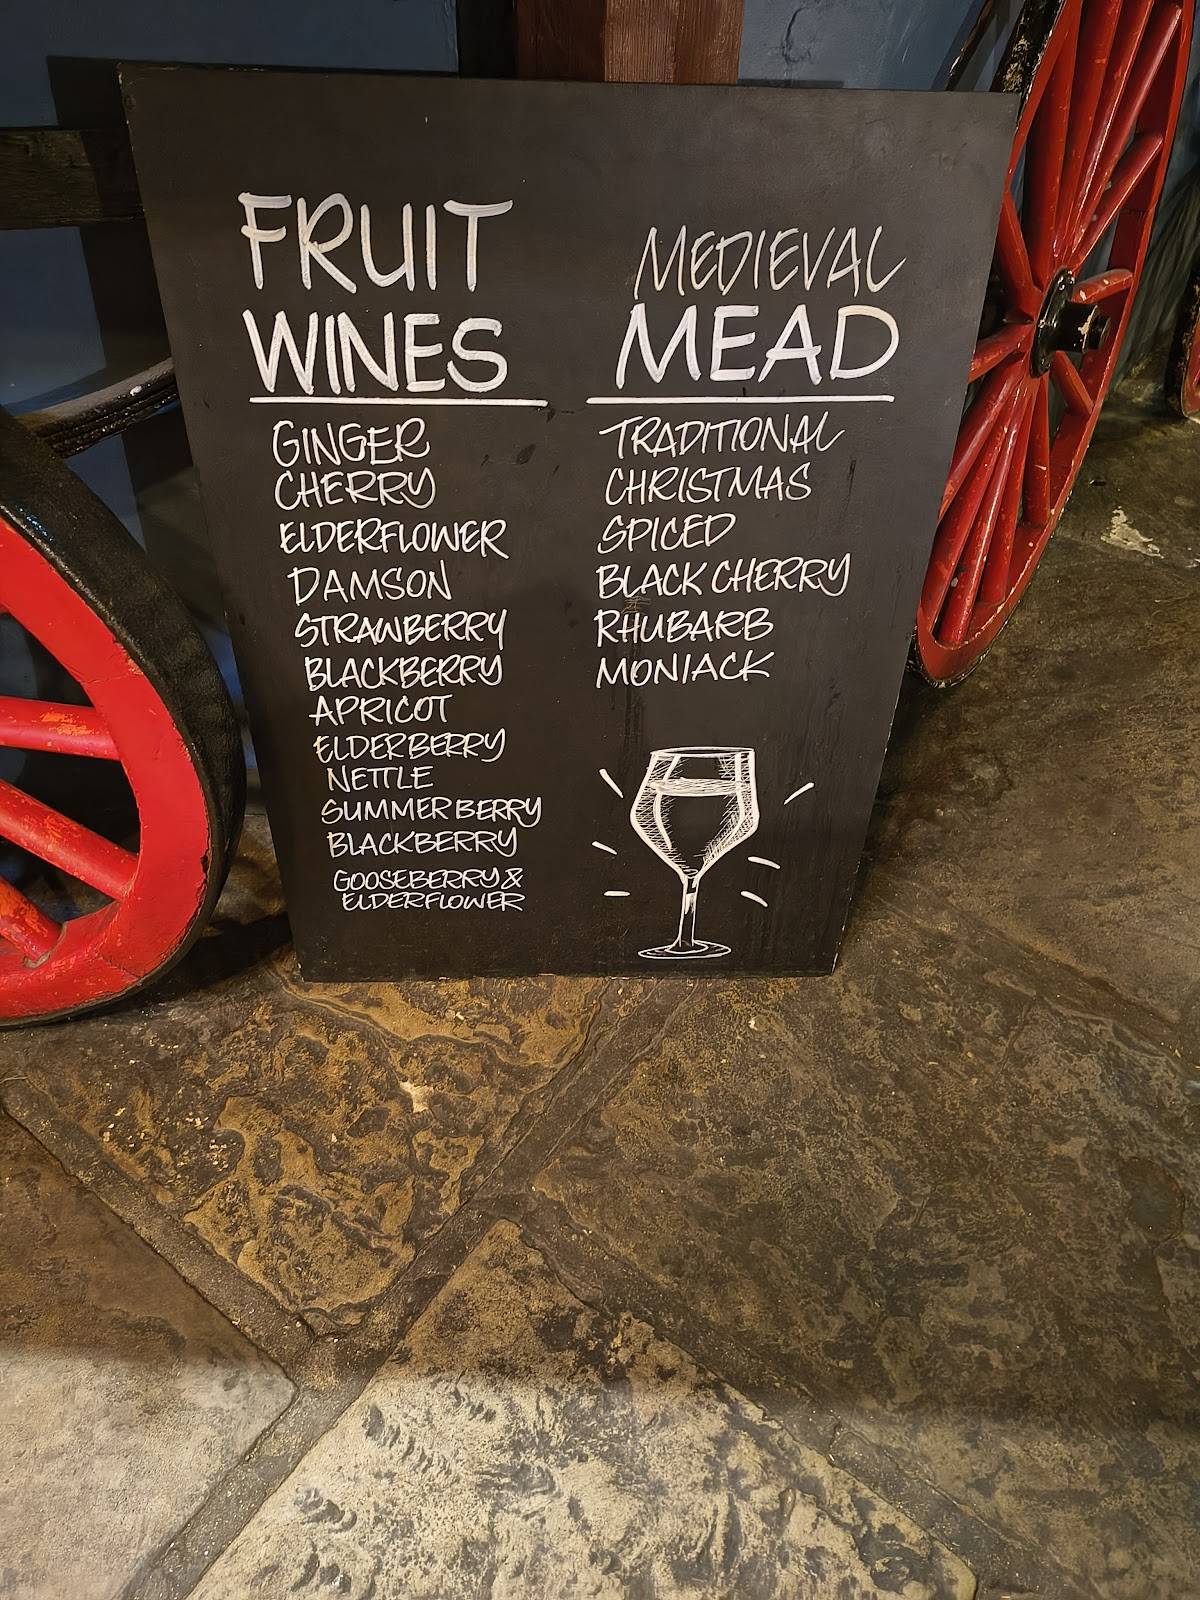 FRUIT
WINES
GINGER
CHERRY
ELDERFLOWER
DAMSON
STRAWBERRY
BLACKBERRY
APRICOT
ELDERBERRY
NETTLE
SUMMER BERRY
BLACKBERRY
GOOSEBERRY &
ELDERFLOWER
MEDIEVAL
MEAD
TRADITIONAL
CHRISTMAS
SPICED
BLACK CHERRY
RHUBARB
MONIACK